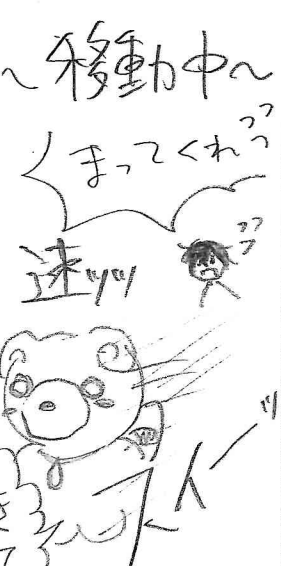 ～移動中～
まってくれッッ
速ッッ
スイーッ